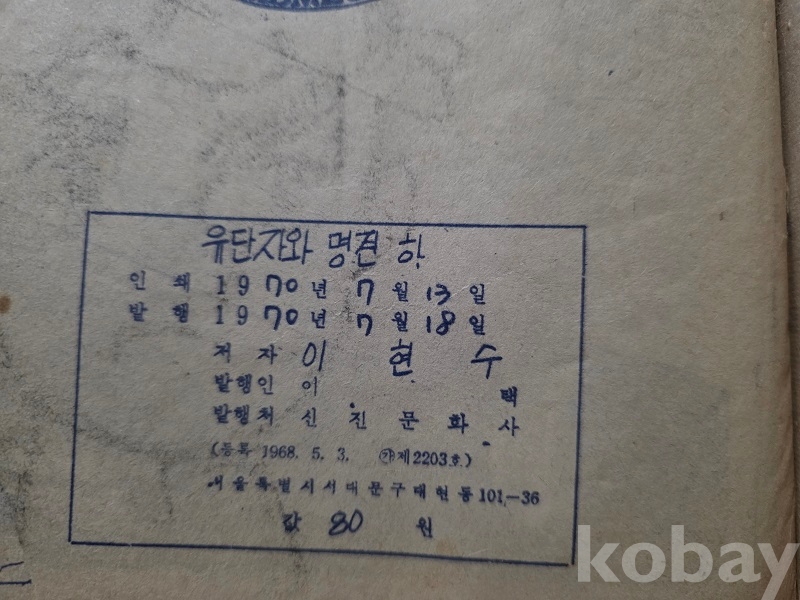 유단자와 명견 하
인쇄 1970년 7월 13일
발행 1970년 7월 18일
저자 이현수
발행인 이 택
발행처 신진문화사
(등록 1968. 5. 3. ㉮제2203호)
서울특별시서대문구대현동101-36
값 80 원
kobay